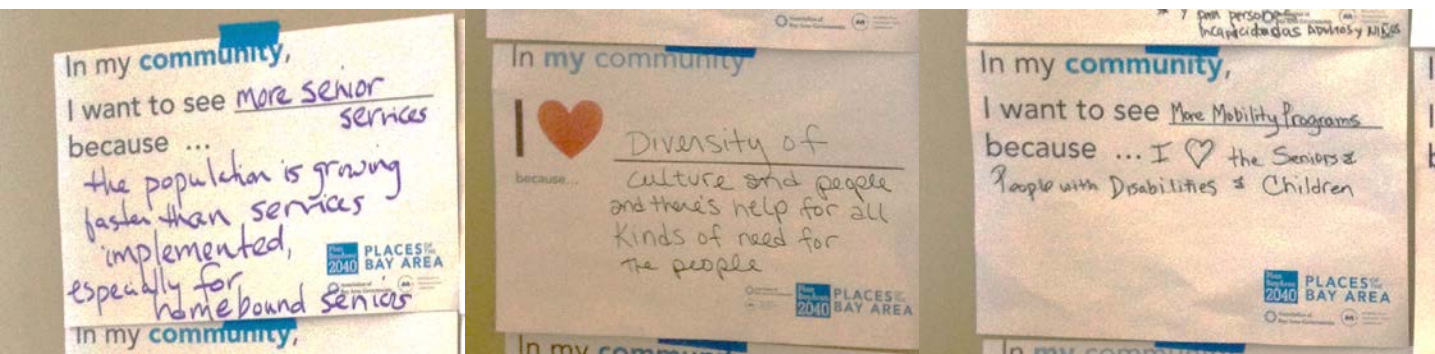 In my community,
I want to see More senior
services
because ...
the population is growing
faster than services
implemented,
especially for
homebound seniors
Plan
BayArea
2040
PLACES OF THE
BAY AREA
Association of
Bay Area Governments
In my community,
Association of
Bay Area Governments
In my community
I
Diversity of
because...
culture and people
and there's help for all
kinds of need for
the people
Plan
BayArea
2040
PLACES OF THE
BAY AREA
In my community
y para personas
incapacidadas Adultos y Niños
In my community,
I want to see More Mobility Programs
because ... I ♡ the Seniors &
People with Disabilities & Children
Plan
BayArea
2040
PLACES OF THE
BAY AREA
Association of
Bay Area Governments
In my community